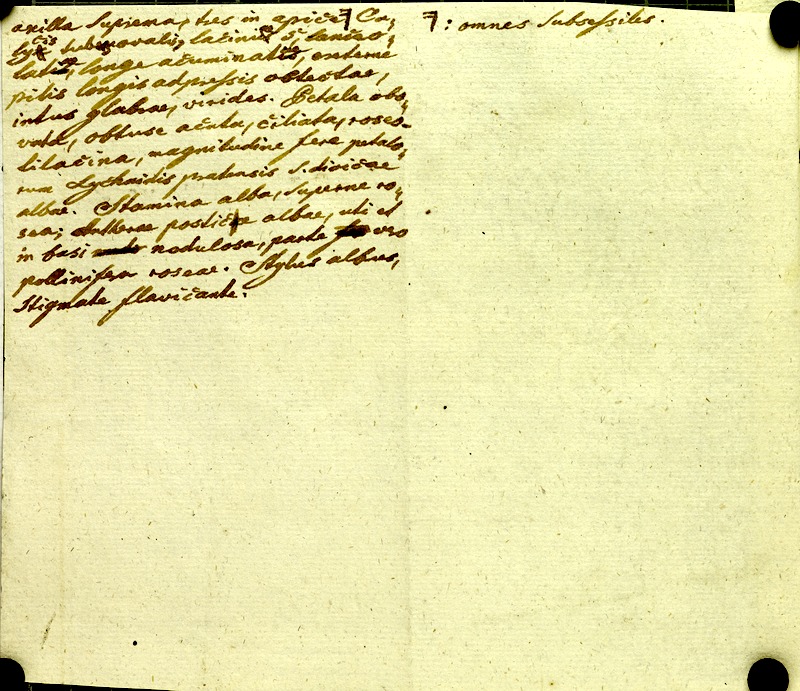 axilla suprema, tres in apice 7 Ca,
lycis tubus ovalis, laciniae 5 lanceo,
latae, longe acuminatae, externe
pilis longis adpressis obtectae,
intus glabrae, virides. Petala obo,
vata, obtuse acuta, ciliata, roseo-
lilacina, magnitudine fere petalo,
rum Lychnidis pratensis s. dioicae
albae. Stamina alba, superne ro,
sea; Antherae posticae albae, uti et
in basi nodulosa, parte vero
pollinifera roseae. Stylus albus,
Stigmate flavicante.
7: omnes subsessiles.